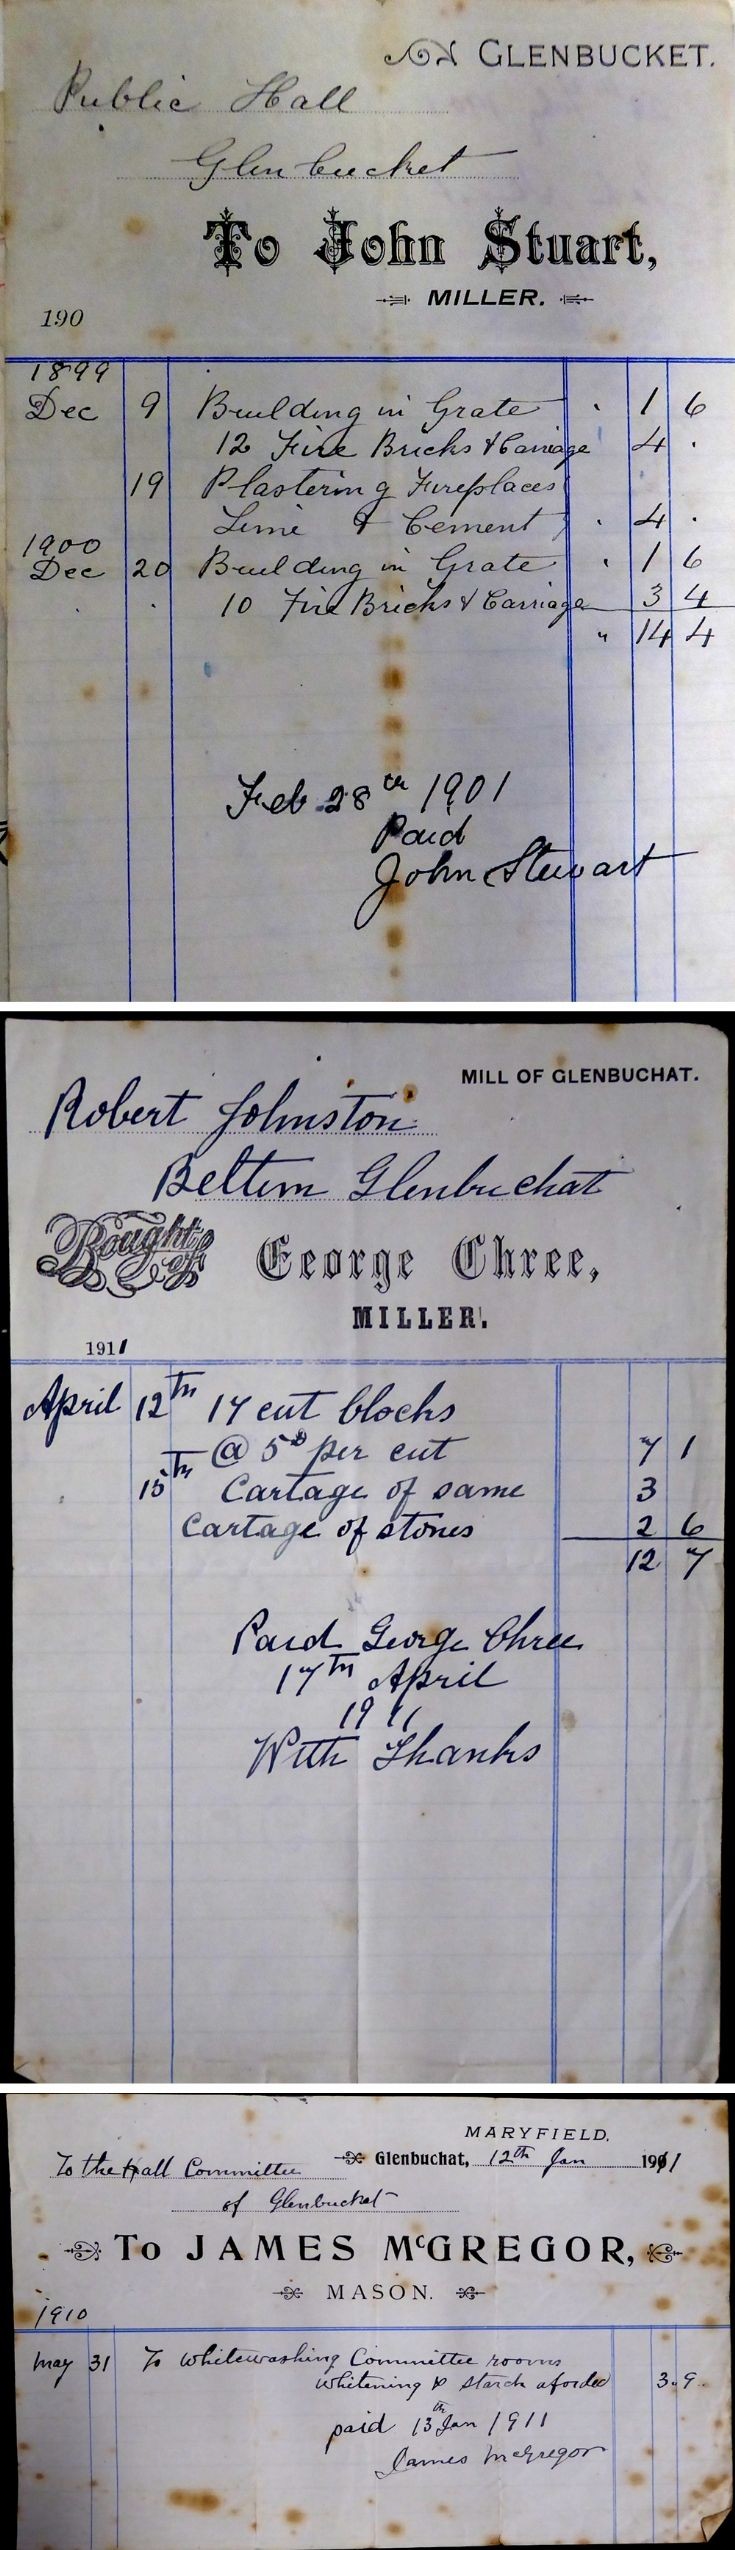 GLENBUCKET.
Public Hall
Glenbucket
To John Stuart,
MILLER.
190
1899
Dec 9 Building in Grate " 1 6
12 Fire Bricks & Carriage 4 "
19 Plastering Fireplaces
Lime & Cement " 4 "
1900
Dec 20 Building in Grate " 1 6
" " 10 Fire Bricks & Carriage 3 4
" 14 4
Feb 28th 1901
Paid
John Stewart
MILL OF GLENBUCHAT.
Robert Johnston
Beltim Glenbuchat
Bought of George Chree,
MILLER.
1911
April 12th 17 cut blocks
@ 5d per cut 7 1
15th Cartage of same 3
Cartage of stones 2 6
12 7
Paid George Chree
17th April
1911
With Thanks
MARYFIELD,
Glenbuchat, 12th Jan 1911
To the Hall Committee
of Glenbucket
To JAMES McGREGOR,
MASON.
1910
May 31 To Whitewashing Committee rooms
whitening & starch aforded 3.9.
paid 13th Jan 1911
James McGregor